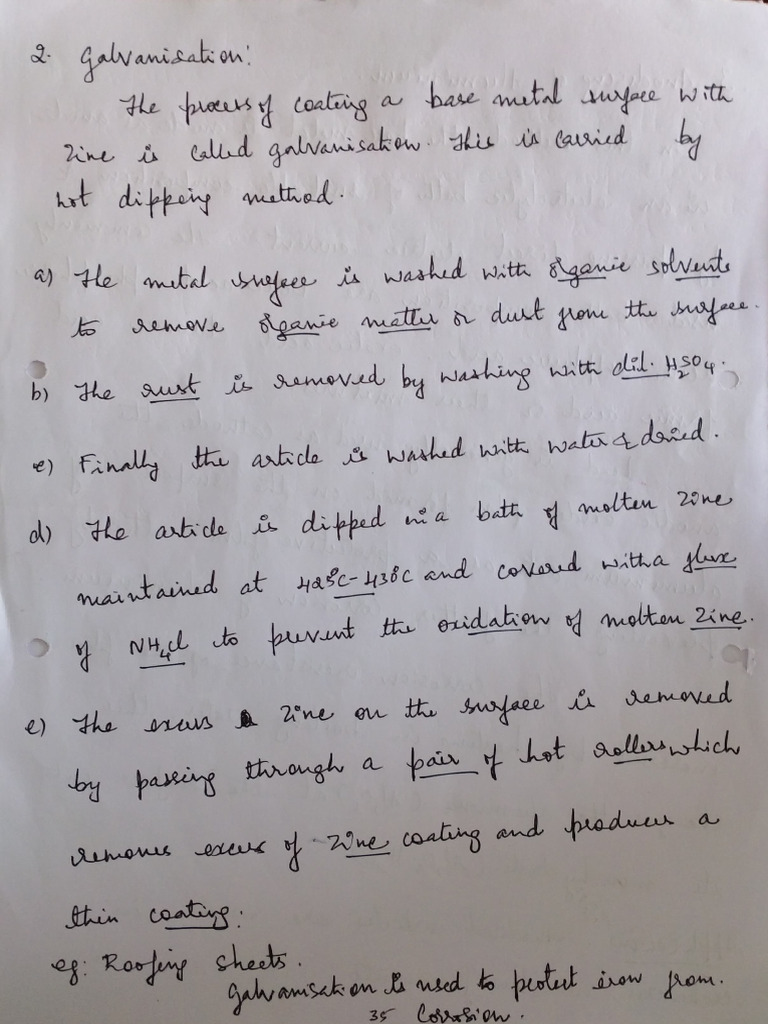 2. Galvanisation:
The process of coating a base metal surface with
Zinc is called galvanisation. This is carried by
hot dipping method.
a) The metal surface is washed with organic solvents
to remove organic matter or dust from the surface.
b) The rust is removed by washing with dil. H2SO4.
c) Finally the article is washed with water & dried.
d) The article is dipped in a bath of molten zinc
maintained at 425°C-430°C and covered with a flux
of NH4Cl to prevent the oxidation of molten Zinc.
e) The excess Zinc on the surface is removed
by passing through a pair of hot rollers which
removes excess of zinc coating and produces a
thin coating.
eg: Roofing sheets.
Galvanisation is used to protect iron from.
35 Corrosion.